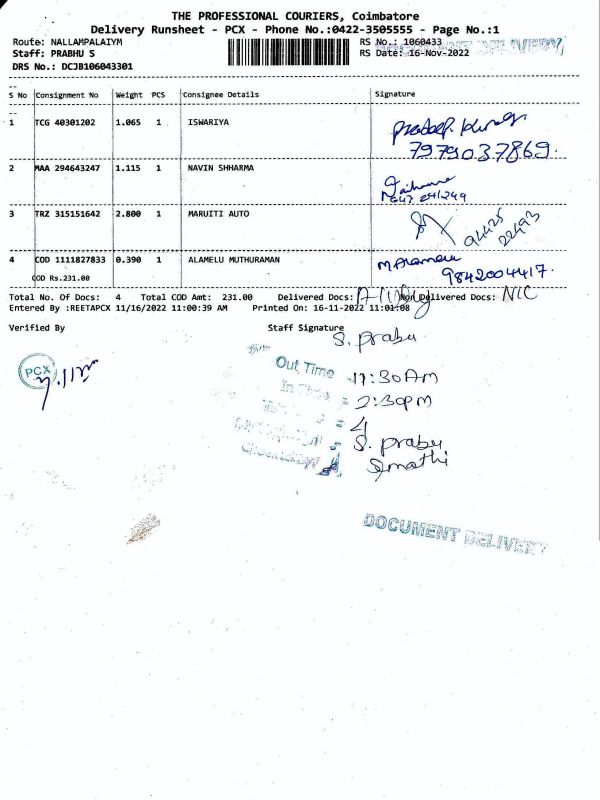 THE PROFESSIONAL COURIERS, Coimbatore
Delivery Runsheet - PCX - Phone No.:0422-3505555 - Page No.:1
Route: NALLAMPALAIYM RS No.: 1060433 DELIVERY
Staff: PRABHU S RS Date: 16-Nov-2022
DRS No.: DCJB106043301
S No Consignment No Weight PCS Consignee Details Signature
1 TCG 40301202 1.065 1 ISWARIYA
7979037869.
2 MAA 294643247 1.115 1 NAVIN SHHARMA
3 TRZ 315151642 2.800 1 MARUITI AUTO
94425
22493
4 COD 1111827833 0.390 1 ALAMELU MUTHURAMAN
COD Rs.231.00 9842004417.
Total No. Of Docs: 4 Total COD Amt: 231.00 Delivered Docs: Non Delivered Docs: NIC
Entered By :REETAPCX 11/16/2022 11:00:39 AM Printed On: 16-11-2022 11:01:08
Verified By Staff Signature
S. prabu
PCX
Out Time 11:30AM
2:30PM
4
S. prabu
DOCUMENT DELIVERY